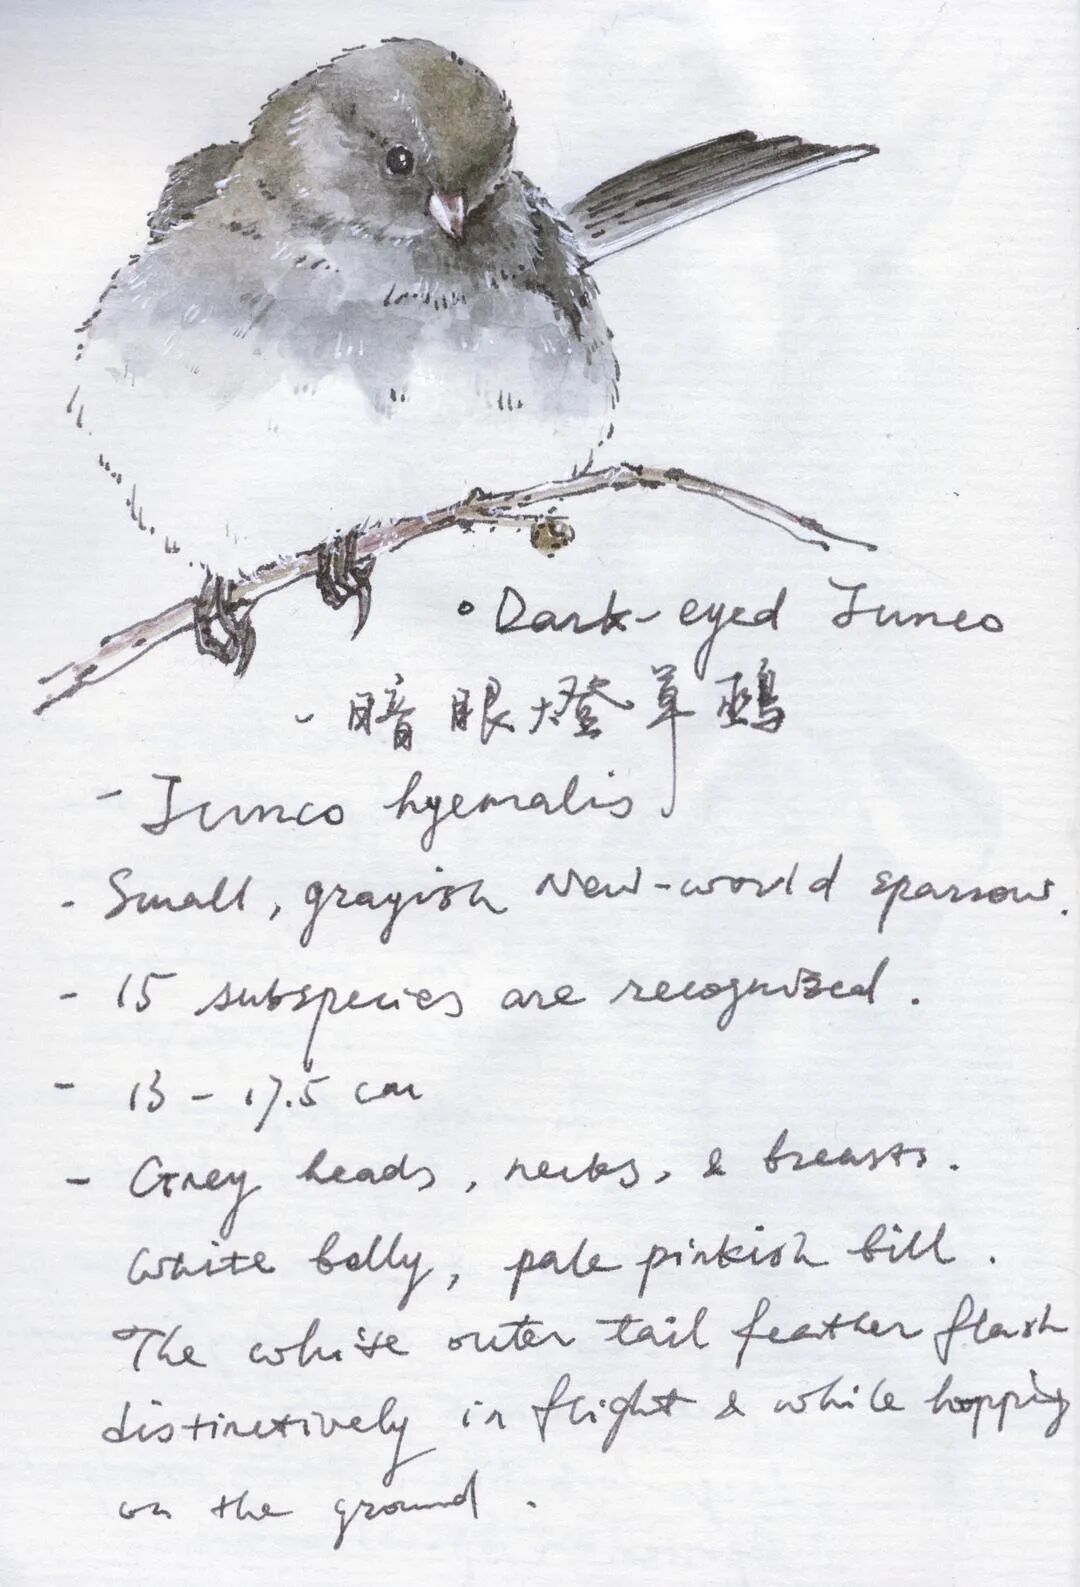 • Dark-eyed Junco
- 暗眼燈草鵐
- Junco hyemalis
- Small, grayish New-world sparrow.
- 15 subspecies are recognized.
- 13 - 17.5 cm
- Grey heads, necks, & breasts.
White belly, pale pinkish bill.
The white outer tail feather flash
distinctively in flight & while hopping
on the ground.